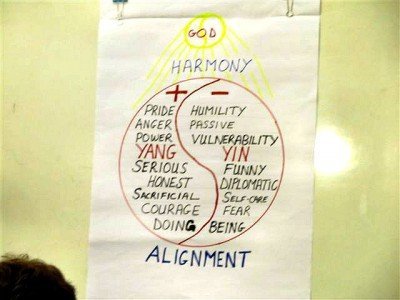 GOD
HARMONY
+ -
PRIDE HUMILITY
ANGER PASSIVE
POWER VULNERABILITY
YANG YIN
SERIOUS FUNNY
HONEST DIPLOMATIC
SACRIFICIAL SELF-CARE
COURAGE FEAR
DOING BEING
ALIGNMENT